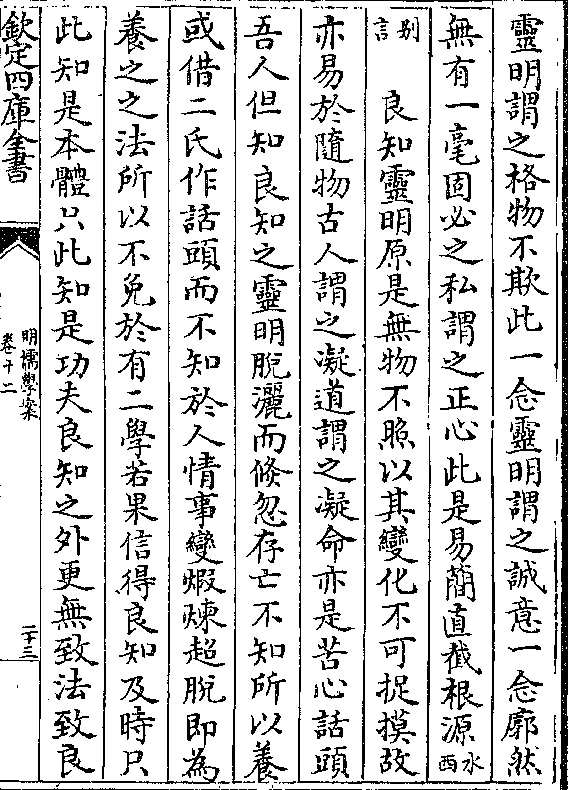 靈明謂之格物不欺此一念靈明謂之誠意一念廓然
無有一毫固必之私謂之正心此是易簡直截根源水西
别言
良知靈明原是無物不照以其變化不可捉摸故
亦易於隨物古人謂之凝道謂之凝命亦是苦心話頭
吾人但知良知之靈明脱灑而倏忽存亡不知所以養
或借二氏作話頭而不知於人情事變煆煉超脱即為
養之之法所以不免於有二學若果信得良知及時只
此知是本體只此知是功夫良知之外更無致法致良
欽定四庫全書
明儒學案
卷十二
二十三